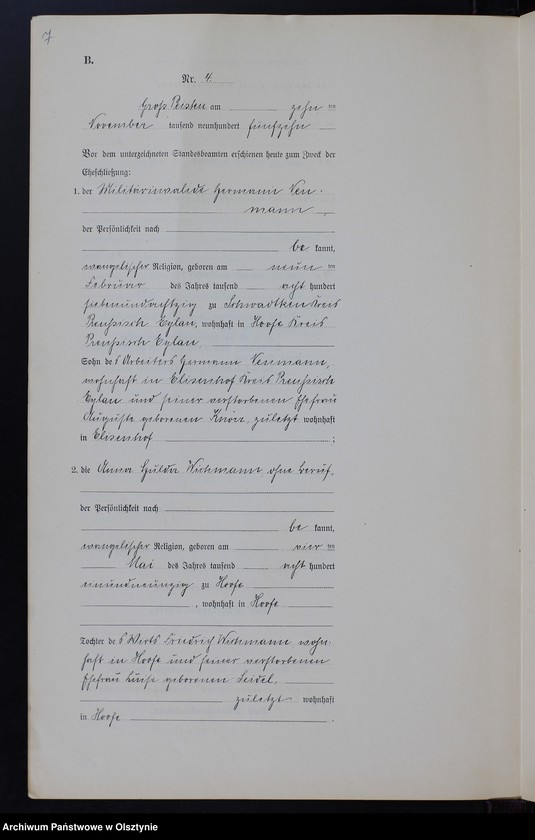 7
B.
Nr. 4.
Groß Peisten am zehn ten
November tausend neunhundert fünfzehn
Vor dem unterzeichneten Standesbeamten erschienen heute zum Zweck der
Eheschließung:
1. der Militärinvalide Hermann Ven-
mann,
der Persönlichkeit nach
be kannt,
evangelischer Religion, geboren am neun ten
Februar des Jahres tausend acht hundert
siebenundachtzig zu Schwadtken Kreis
Preußisch Eylau, wohnhaft in Hoofe Kreis
Preußisch Eylau,
Sohn des Arbeiters Hermann Venmann,
wohnhaft in Elisenhof Kreis Preußisch
Eylau und seiner verstorbenen Ehefrau
Auguste geborenen Knorr, zuletzt wohnhaft
in Elisenhof ;
2. die Anna Hulda Wichmann, ohne Beruf,
der Persönlichkeit nach
be kannt,
evangelischer Religion, geboren am vier ten
Mai des Jahres tausend acht hundert
neunundneunzig zu Hoofe
, wohnhaft in Hoofe
Tochter des Wirts Friedrich Wichmann wohn-
haft in Hoofe und seiner verstorbenen
Ehefrau Luise geborenen Seidel,
zuletzt wohnhaft
in Hoofe .
Archiwum Państwowe w Olsztynie